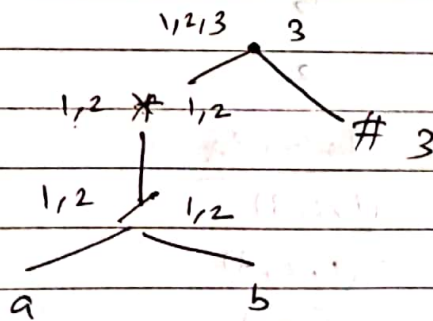 1,2,3 • 3
1,2 * 1,2
# 3
1,2 / 1,2
a b